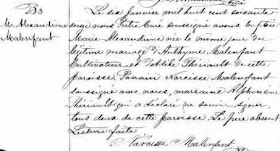 B3
M. Alexandrine
Malenfant
Le six janvier mil huit cent soixante
nous Prêtre Curé soussigné avons baptisé
Marie Alexandrine née le même jour du
légitime mariage d'Arthyme Malenfant
Cultivateur et de Thériault de cette
paroisse. Parrain Narcisse Malenfant
soussigné avec nous, marraine Alphonsine
Thériault qui a déclaré ne savoir signer,
tous deux de cette paroisse. Le père absent
Lecture faite.
Narcisse Malenfant